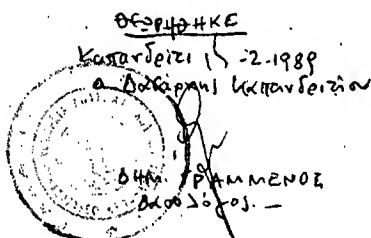 ΘΕΩΡΗΘΗΚΕ
Καπανδρίτι, -2-1989
ο Δασάρχης Καπανδριτίου
ΔΗΜ. ΓΡΑΜΜΕΝΟΣ
Δασολόγος. —